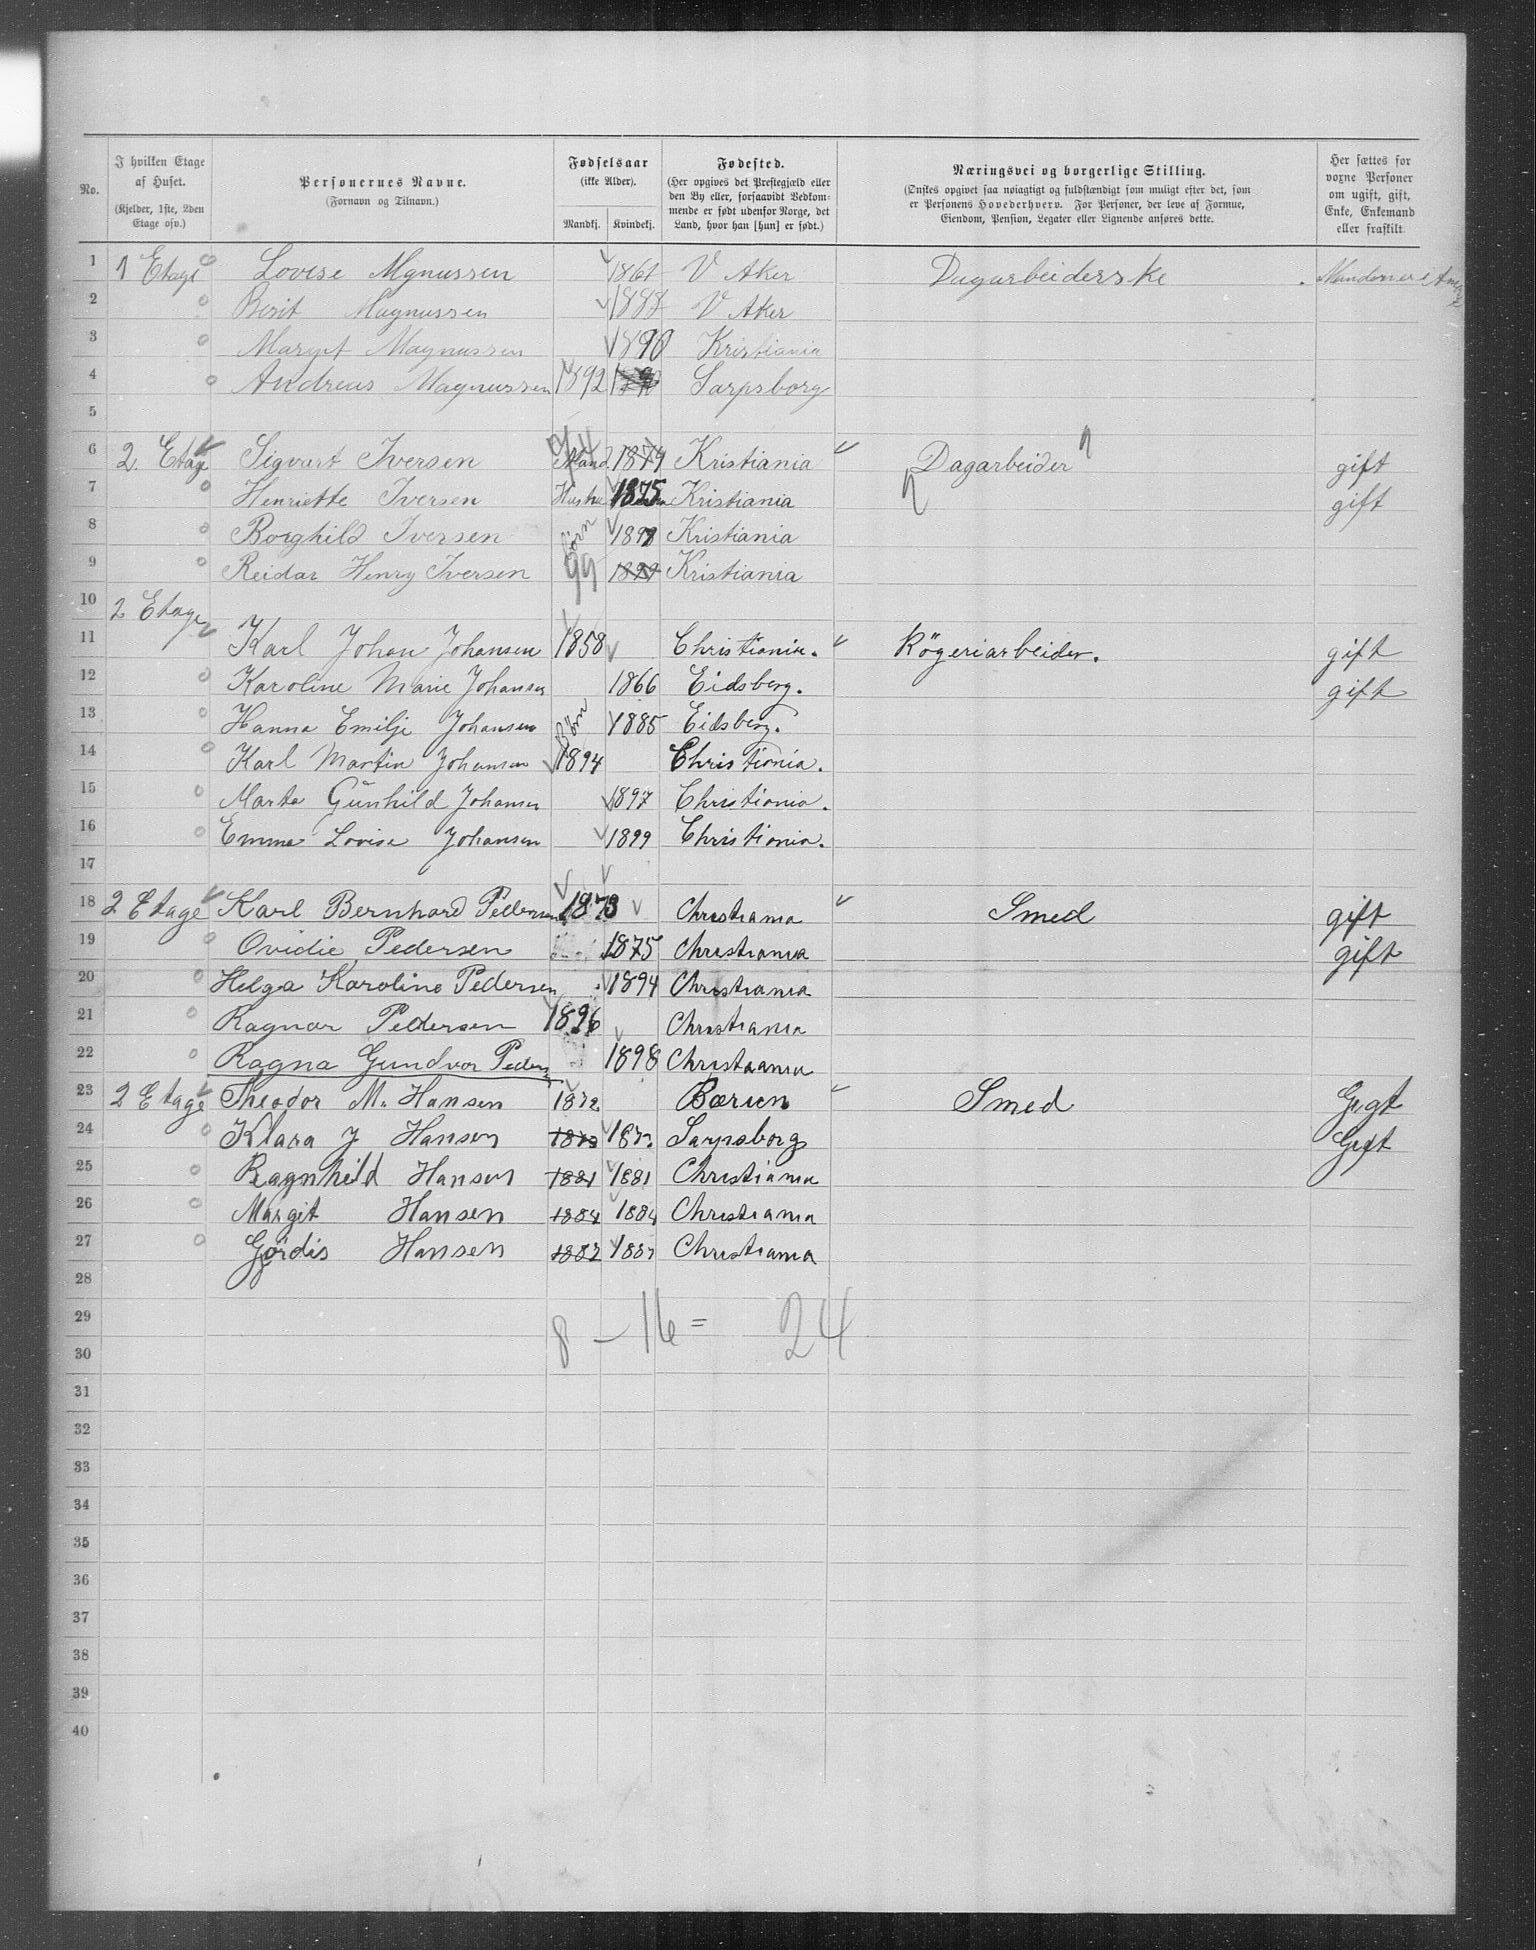 No. | I hvilken Etage af Huset. (Kjelder, 1ste, 2den Etage osv.) | Personernes Navne. (Fornavn og Tilnavn.) | Fødselsaar (ikke Alder). Mandkj. Kvindekj. | Fødested. (Her opgives det Prestegjæld eller den By eller, forsaavidt Vedkommende er født udenfor Norge, det Land, hvor han [hun] er født.) | Næringsvei og borgerlige Stilling. (Ønskes opgivet saa nøiagtigt og fuldstændigt som muligt efter det, som er Personens Hovederhverv. For Personer, der leve af Formue, Eiendom, Pension, Legater eller Lignende anføres dette. | Her sættes for voxne Personer om ugift, gift, Enke, Enkemand eller fraskilt
1 1 Etage Lovise Mgnussen 1861 V Aker Dagarbeiderske
2 Berit Magnussen 1887 V Aker
3 Margit Magnussen 1890 Kristiania
4 Andreas Magnussen 1892 Sarpsborg
5
6 2 Etage Sigvart Iversen Mand 1874 Kristiania Dagarbeider gift
7 Henriette Iversen 1875 Kristiania gift
8 Borghild Iversen Börn 1897 Kristiania
9 Reidar Henry Iversen 99 1899 Kristiania
10 2 Etage
11 Karl Johan Johansen 1858 Christiania. Rögeriarbeider. gift
12 Karoline Marie Johansen 1866 Eidsberg. gift
13 Hanna Emilje Johansen Börn 1885 Eidsberg.
14 Karl Martin Johansen 1894 Christiania.
15 Marta Gunhild Johansen 1897 Christiania.
16 Emma Lovise Johansen 1899 Christiania.
17
18 2 Etage Karl Bernhard Pedersen 1873 Christiania Smed gift
19 Ovidie Pedersen 1875 Christiania gift
20 Helga Karoline Pedersen 1894 Christiania
21 Ragnar Pedersen 1896 Christiania
22 Ragna Gundvor Peders 1898 Christiania
23 2 Etage Theodor M. Hansen Bærum Smed Gegt
24 Klara J Hansen Sarpsborg Gegt
25 Ragnhild Hansen 1881 1881 Christiania
26 Margit Hansen 1884 1884 Christiania
27 Gördis Hansen 1887 1887 Christiania
28
29 8 – 16 = 24
30
31
32
33
34
35
36
37
38
39
40